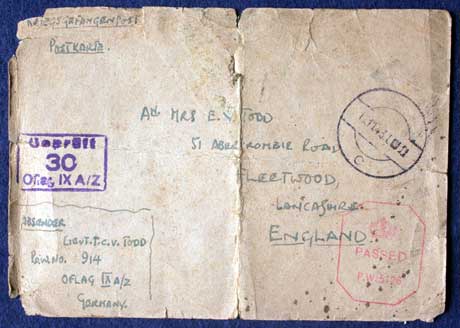 KRIEGSGEFANGENPOST
POSTKARTE.
AN MRS E. V. TODD
51 ABERCROMBIE ROAD,
FLEETWOOD,
LANCASHIRE.
ENGLAND.
Geprüft
30
Oflag IX A/Z
ABSENDER
LIEUT. P.C.V. TODD
P.o.W. No. 914
OFLAG IX A/Z
GERMANY.
PASSED